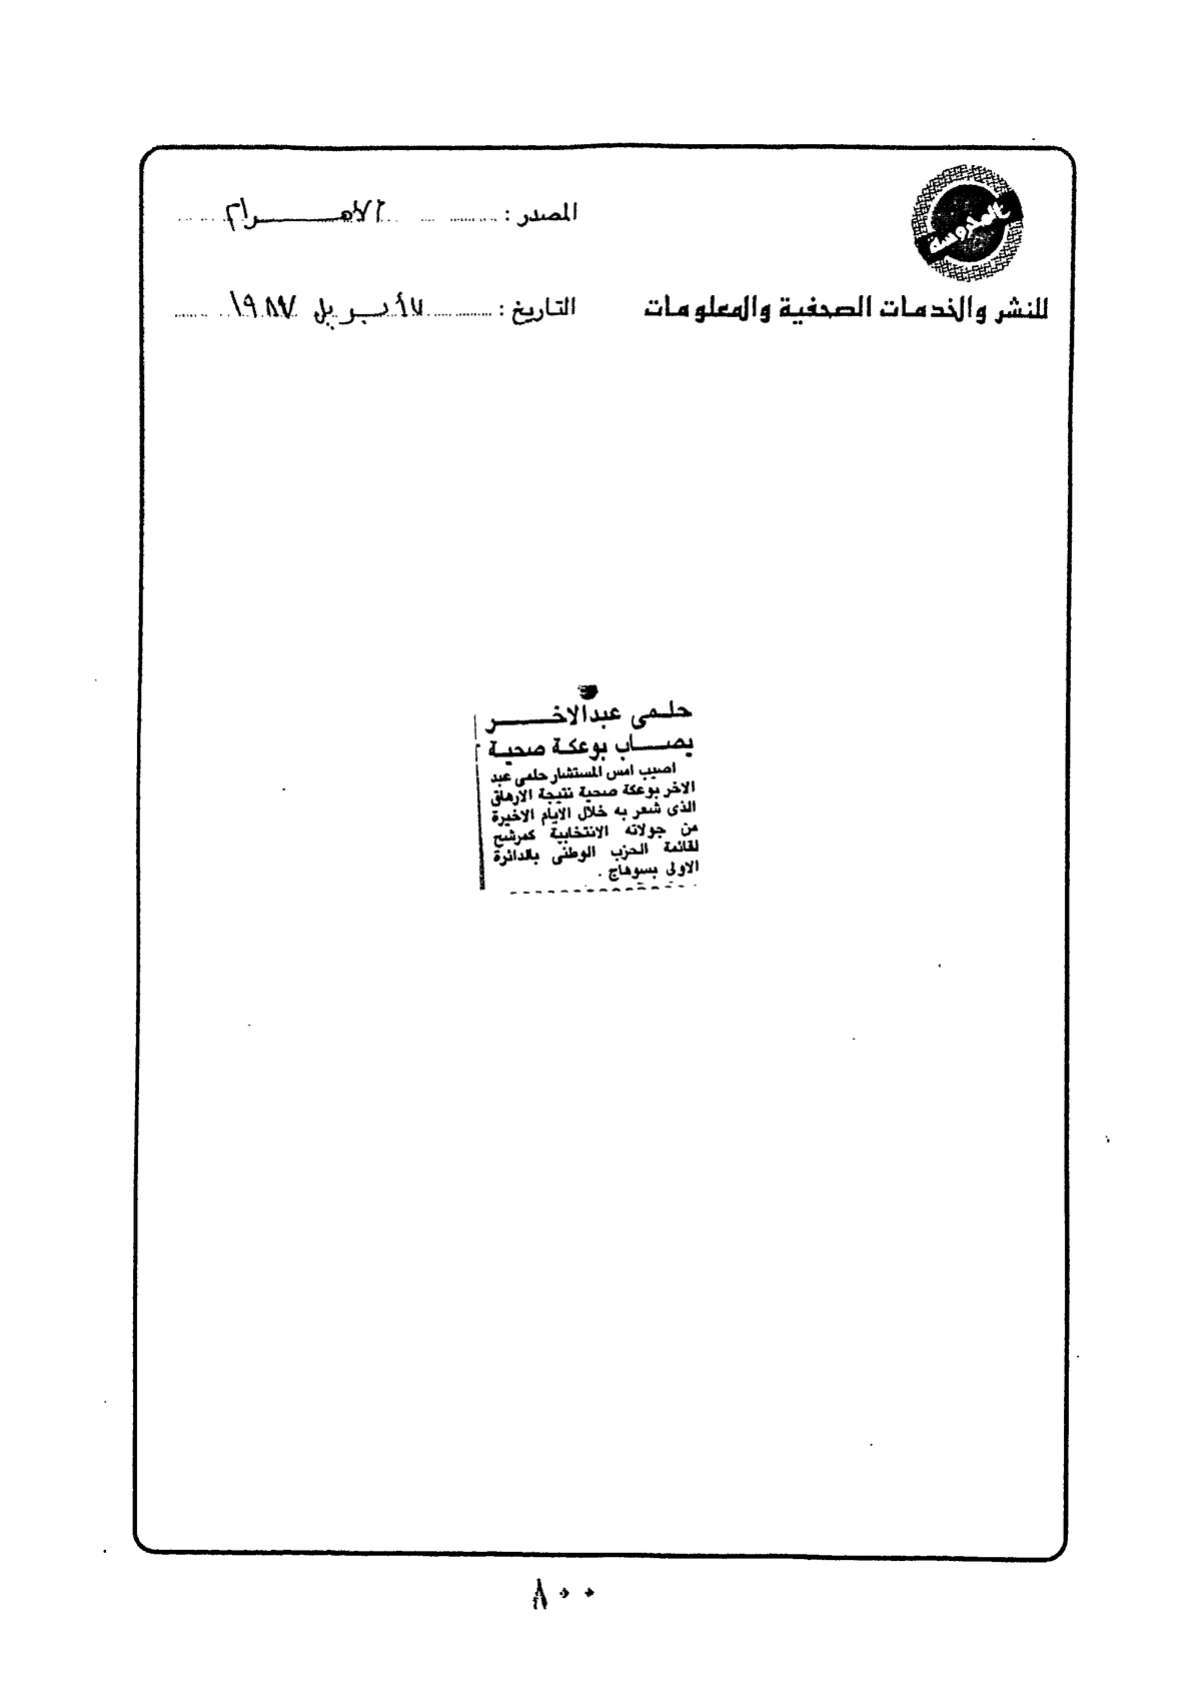 المحروسة
للنشر والخدمات الصحفية والمعلومات
المصدر : الأهرام
التاريخ : ٧ أبريل ١٩٨٧
حلمى عبدالاخر
يصاب بوعكة صحية
اصيب امس المستشار حلمى عبد
الاخر بوعكة صحية نتيجة الارهاق
الذى شعر به خلال الايام الاخيرة
من جولاته الانتخابية كمرشح
لقائمة الحزب الوطنى بالدائرة
الاولى بسوهاج .
٨٠٠